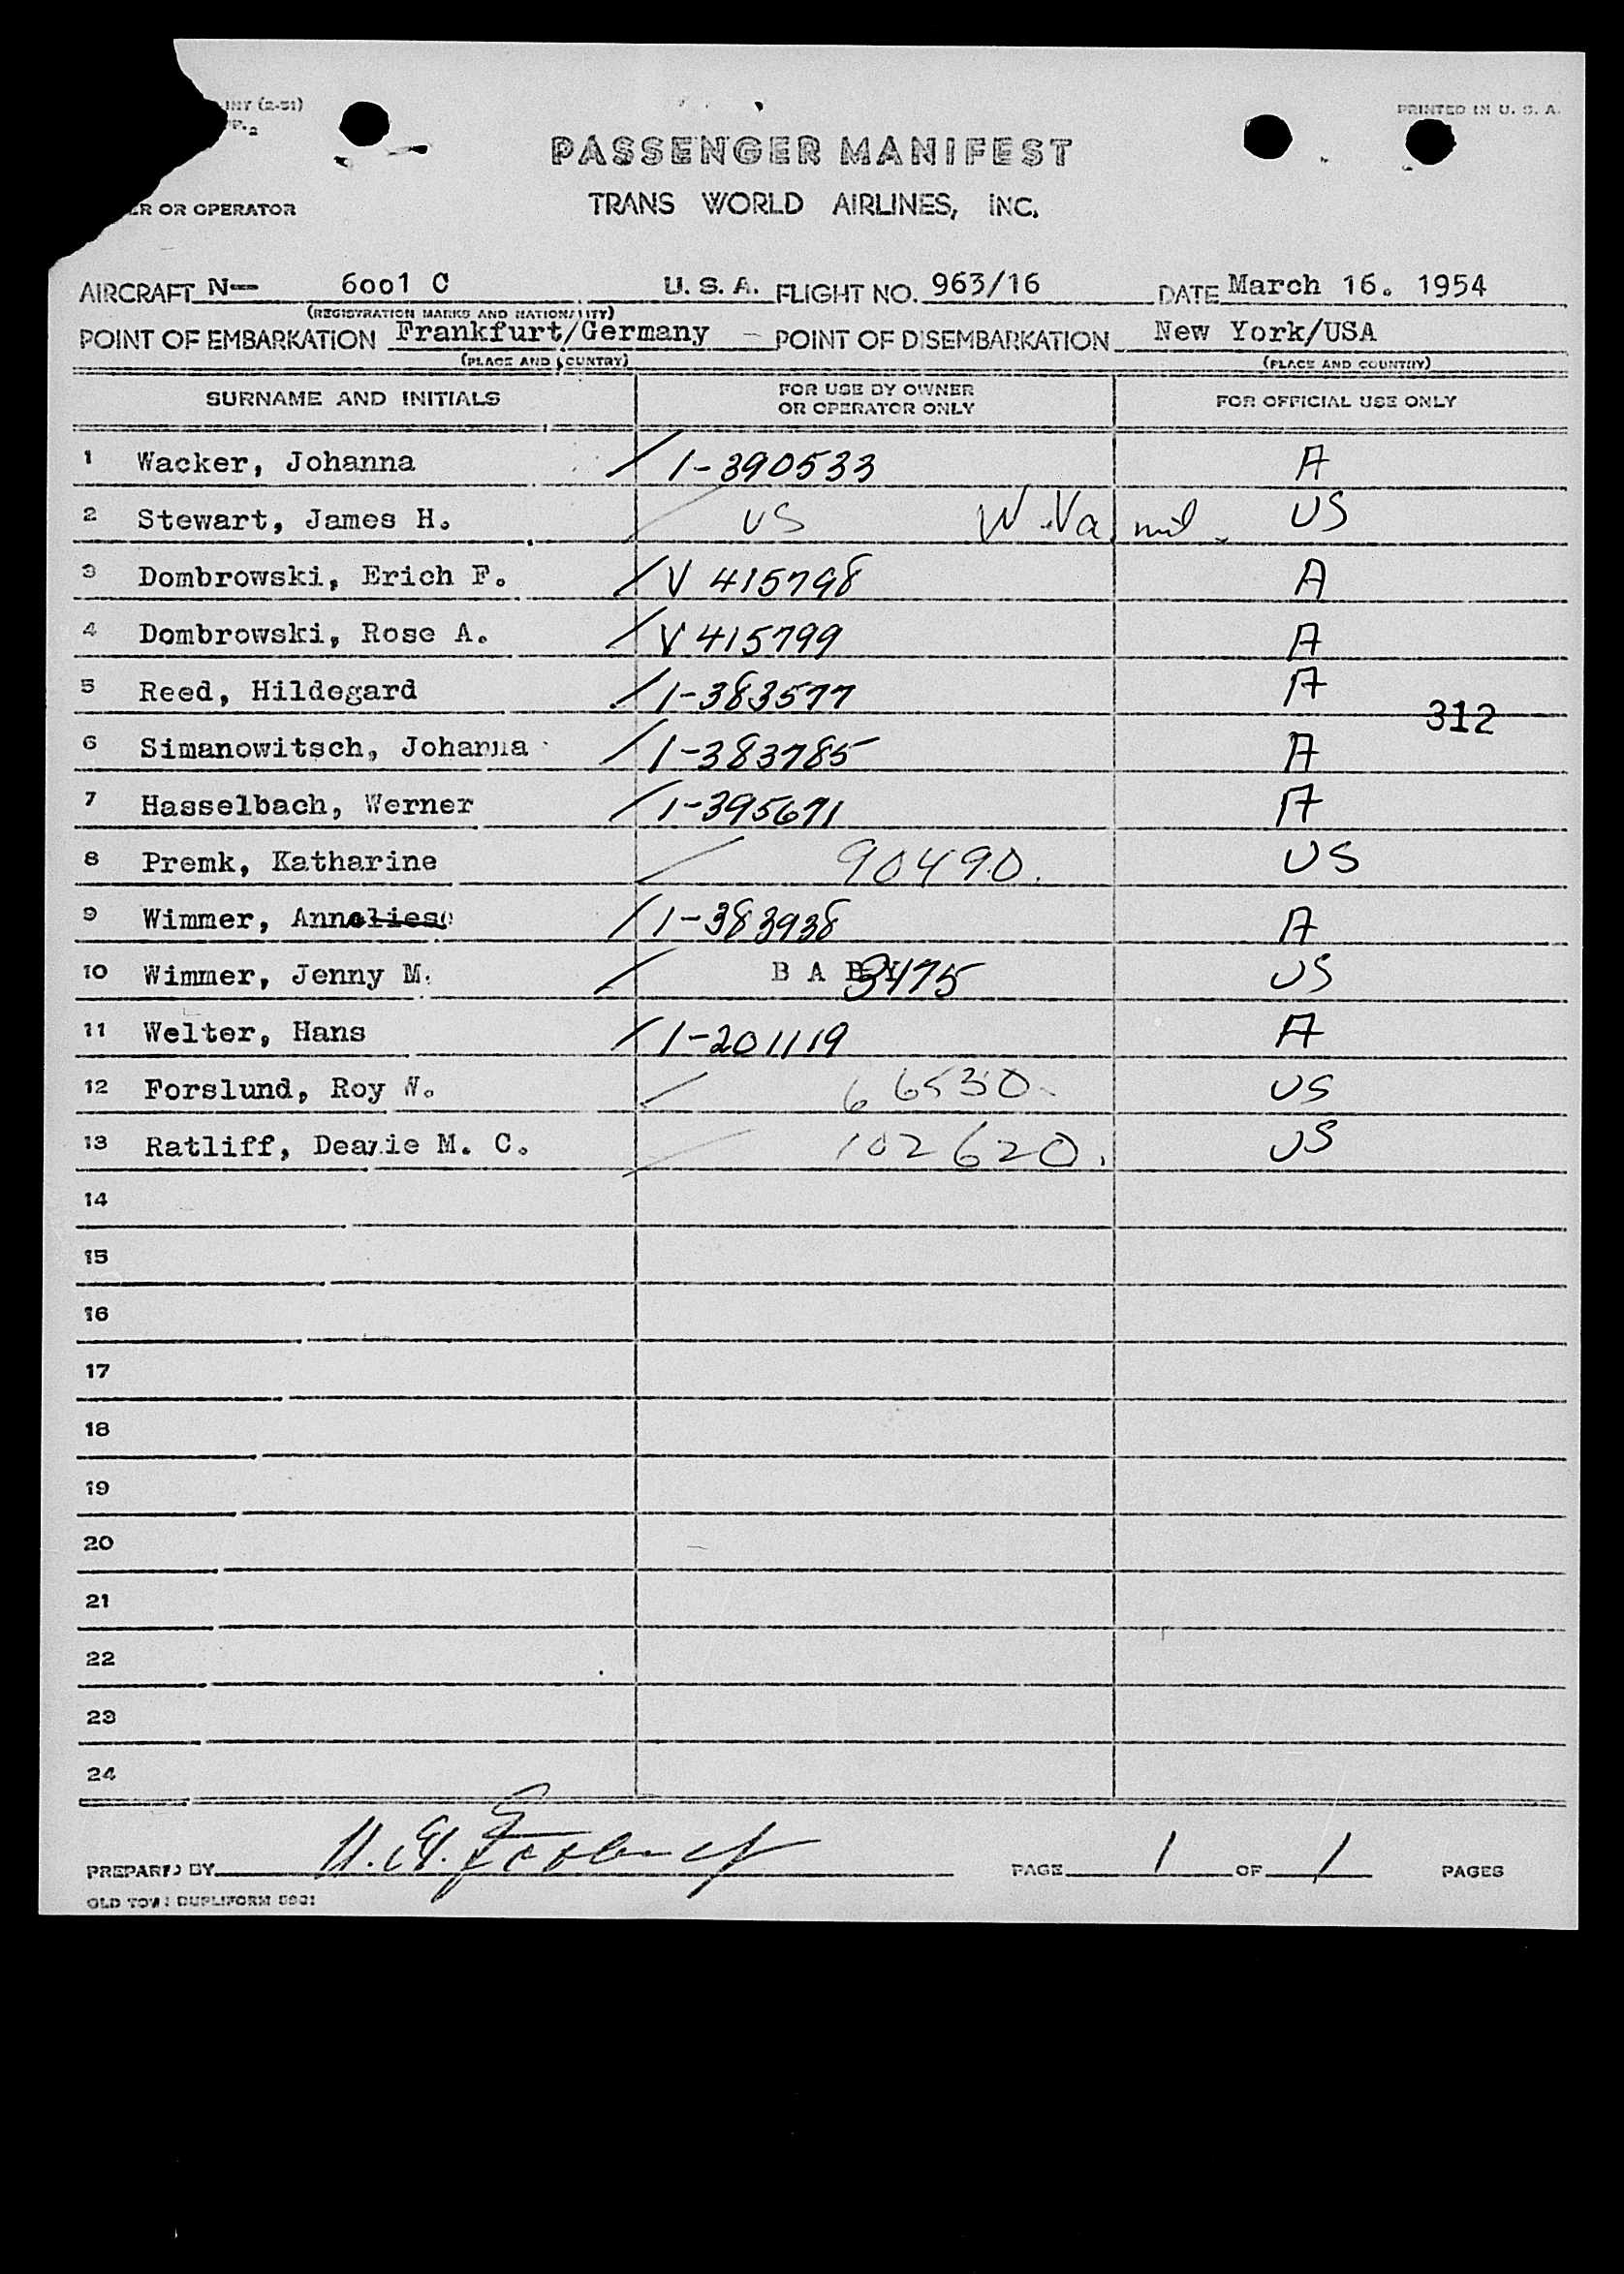 INY (2-51)
PRINTED IN U. S. A.
PASSENGER MANIFEST
ER OR OPERATOR
TRANS WORLD AIRLINES, INC.
AIRCRAFT N-- 6001 C U. S. A. FLIGHT NO. 963/16 DATE March 16. 1954
(REGISTRATION MARKS AND NATIONALITY)
POINT OF EMBARKATION Frankfurt/Germany POINT OF DISEMBARKATION New York/USA
(PLACE AND COUNTRY) (PLACE AND COUNTRY)
SURNAME AND INITIALS FOR USE BY OWNER OR OPERATOR ONLY FOR OFFICIAL USE ONLY
1 Wacker, Johanna / 1-390533 A
2 Stewart, James H. / US W.Va mil. US
3 Dombrowski, Erich F. / V 415798 A
4 Dombrowski, Rose A. / V 415799 A
5 Reed, Hildegard / 1-383577 A
312
6 Simanowitsch, Johanna / 1-383785 A
7 Hasselbach, Werner / 1-395671 A
8 Premk, Katharine / 90490. US
9 Wimmer, Anneliese / 1-383938 A
10 Wimmer, Jenny M. / B A B Y 3475 US
11 Welter, Hans / 1-201119 A
12 Forslund, Roy W. / 66530 US
13 Ratliff, Deazie M. C. / 102620. US
14
15
16
17
18
19
20
21
22
23
24
PREPARED BY PAGE 1 OF 1 PAGES
OLD TOWN DUPLIFORM